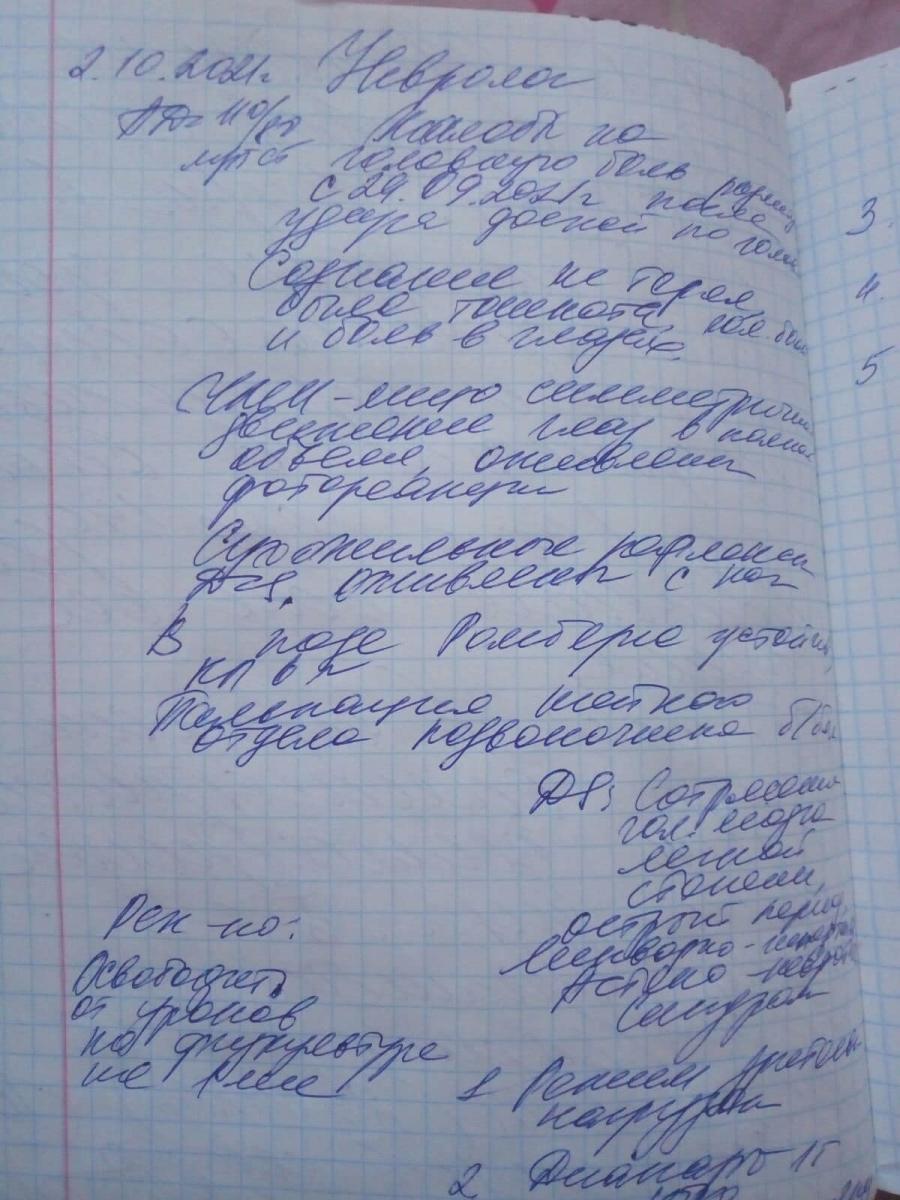 2.10.2021г Невролог
АД= 110/80 Жалобы на
мм рт ст головную боль
с 29.09.2021г после
удара доской по голов
Сознание не терял,
была тошнота, гол. боль
и боль в глазах.
ЧМН - лицо симметричн
движение глаз в полном
объеме, оживлены
фотореакции
Сухожильные рефлексы
D=S, оживлены с ног
В позе Ромберга устойчив,
Пальпация шейного
отдела позвоночника б/бол
DS: Сотрясение
гол. мозга
легкой
степени,
острый период,
Ликворно-гипертен
Астено-невроти
синдром
Рек-но:
Освободить
от уроков
по физкультуре
на 1 мес
1 Режим
нагрузок
2 Диакарб 1т
3.
4.
5